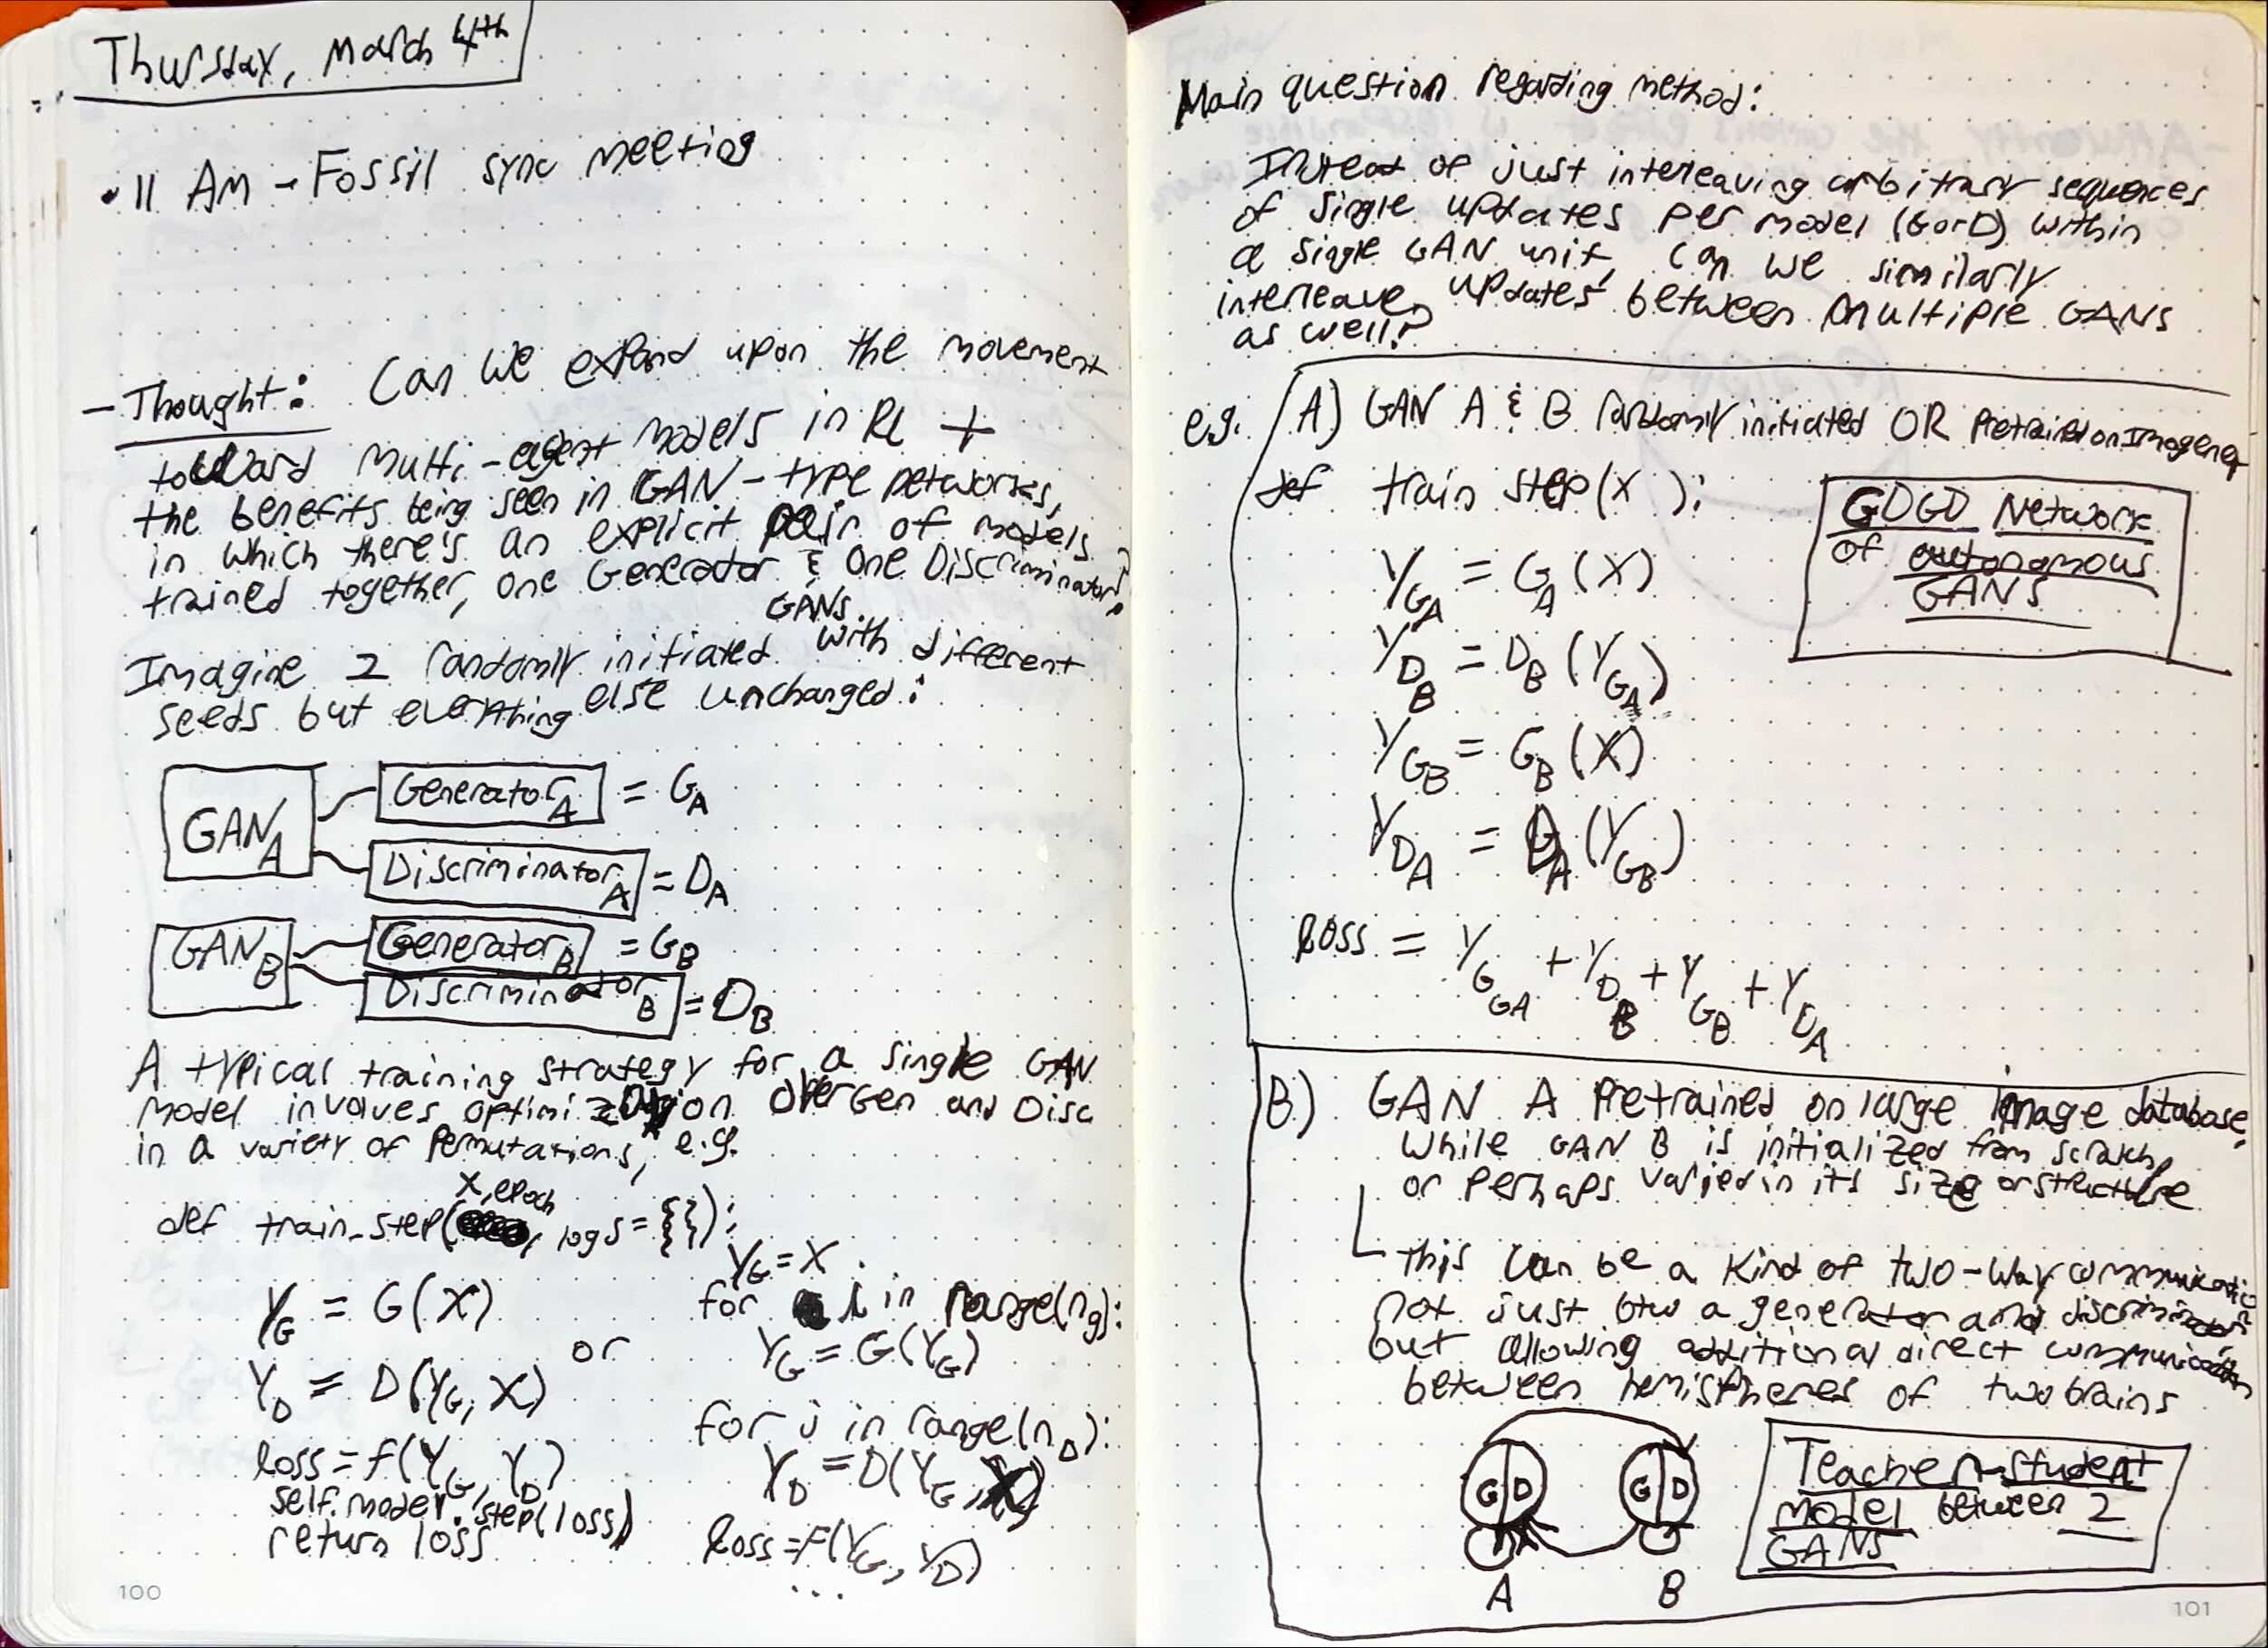 Thursday, March 4th
• 11 AM - Fossil sync meeting
- Thought: Can we expand upon the movement
toward multi-agent models in RL +
the benefits being seen in GAN-type networks,
in which there's an explicit pair of models
trained together, one Generator & one Discriminator?
GANs
Imagine 2 randomly initiated with different
seeds but everything else unchanged:
GAN A
Generator A = G_A
Discriminator A = D_A
GAN B
Generator B = G_B
Discriminator B = D_B
A typical training strategy for a single GAN
model involves optimization over Gen and Disc
in a variety of permutations, e.g.
X, epoch
def train_step( , logs = {}):
Y_G = G(X)
Y_D = D(Y_G, X)
loss = f(Y_G, Y_D)
self.model.step(loss)
return loss
or
Y_G = X
for i in range(n_g):
Y_G = G(Y_G)
for j in range(n_D):
Y_D = D(Y_G, X)
loss = F(Y_G, Y_D)
...
100
Main question regarding method:
Instead of just interleaving arbitrary sequences
of single updates per model (G or D) within
a single GAN unit, can we similarly
interleave updates between multiple GANs
as well?
e.g. A) GAN A & B randomly initiated OR Pretrained on Imagenet
def train step(X ):
Y_G_A = G_A(X)
Y_D_B = D_B(Y_G_A)
Y_G_B = G_B(X)
Y_D_A = D_A(Y_G_B)
loss = Y_G_GA + Y_D_B + Y_G_B + Y_D_A
GDGD Network
of autonomous
GANS
B.) GAN A Pretrained on large Image database,
while GAN B is initialized from scratch,
or perhaps varied in its size or structure
This can be a kind of two-way communication
not just btw a generator and discriminator,
but allowing additional direct communication
between hemispheres of two brains
G D
G D
A
B
Teacher-student
model between 2
GANS
101